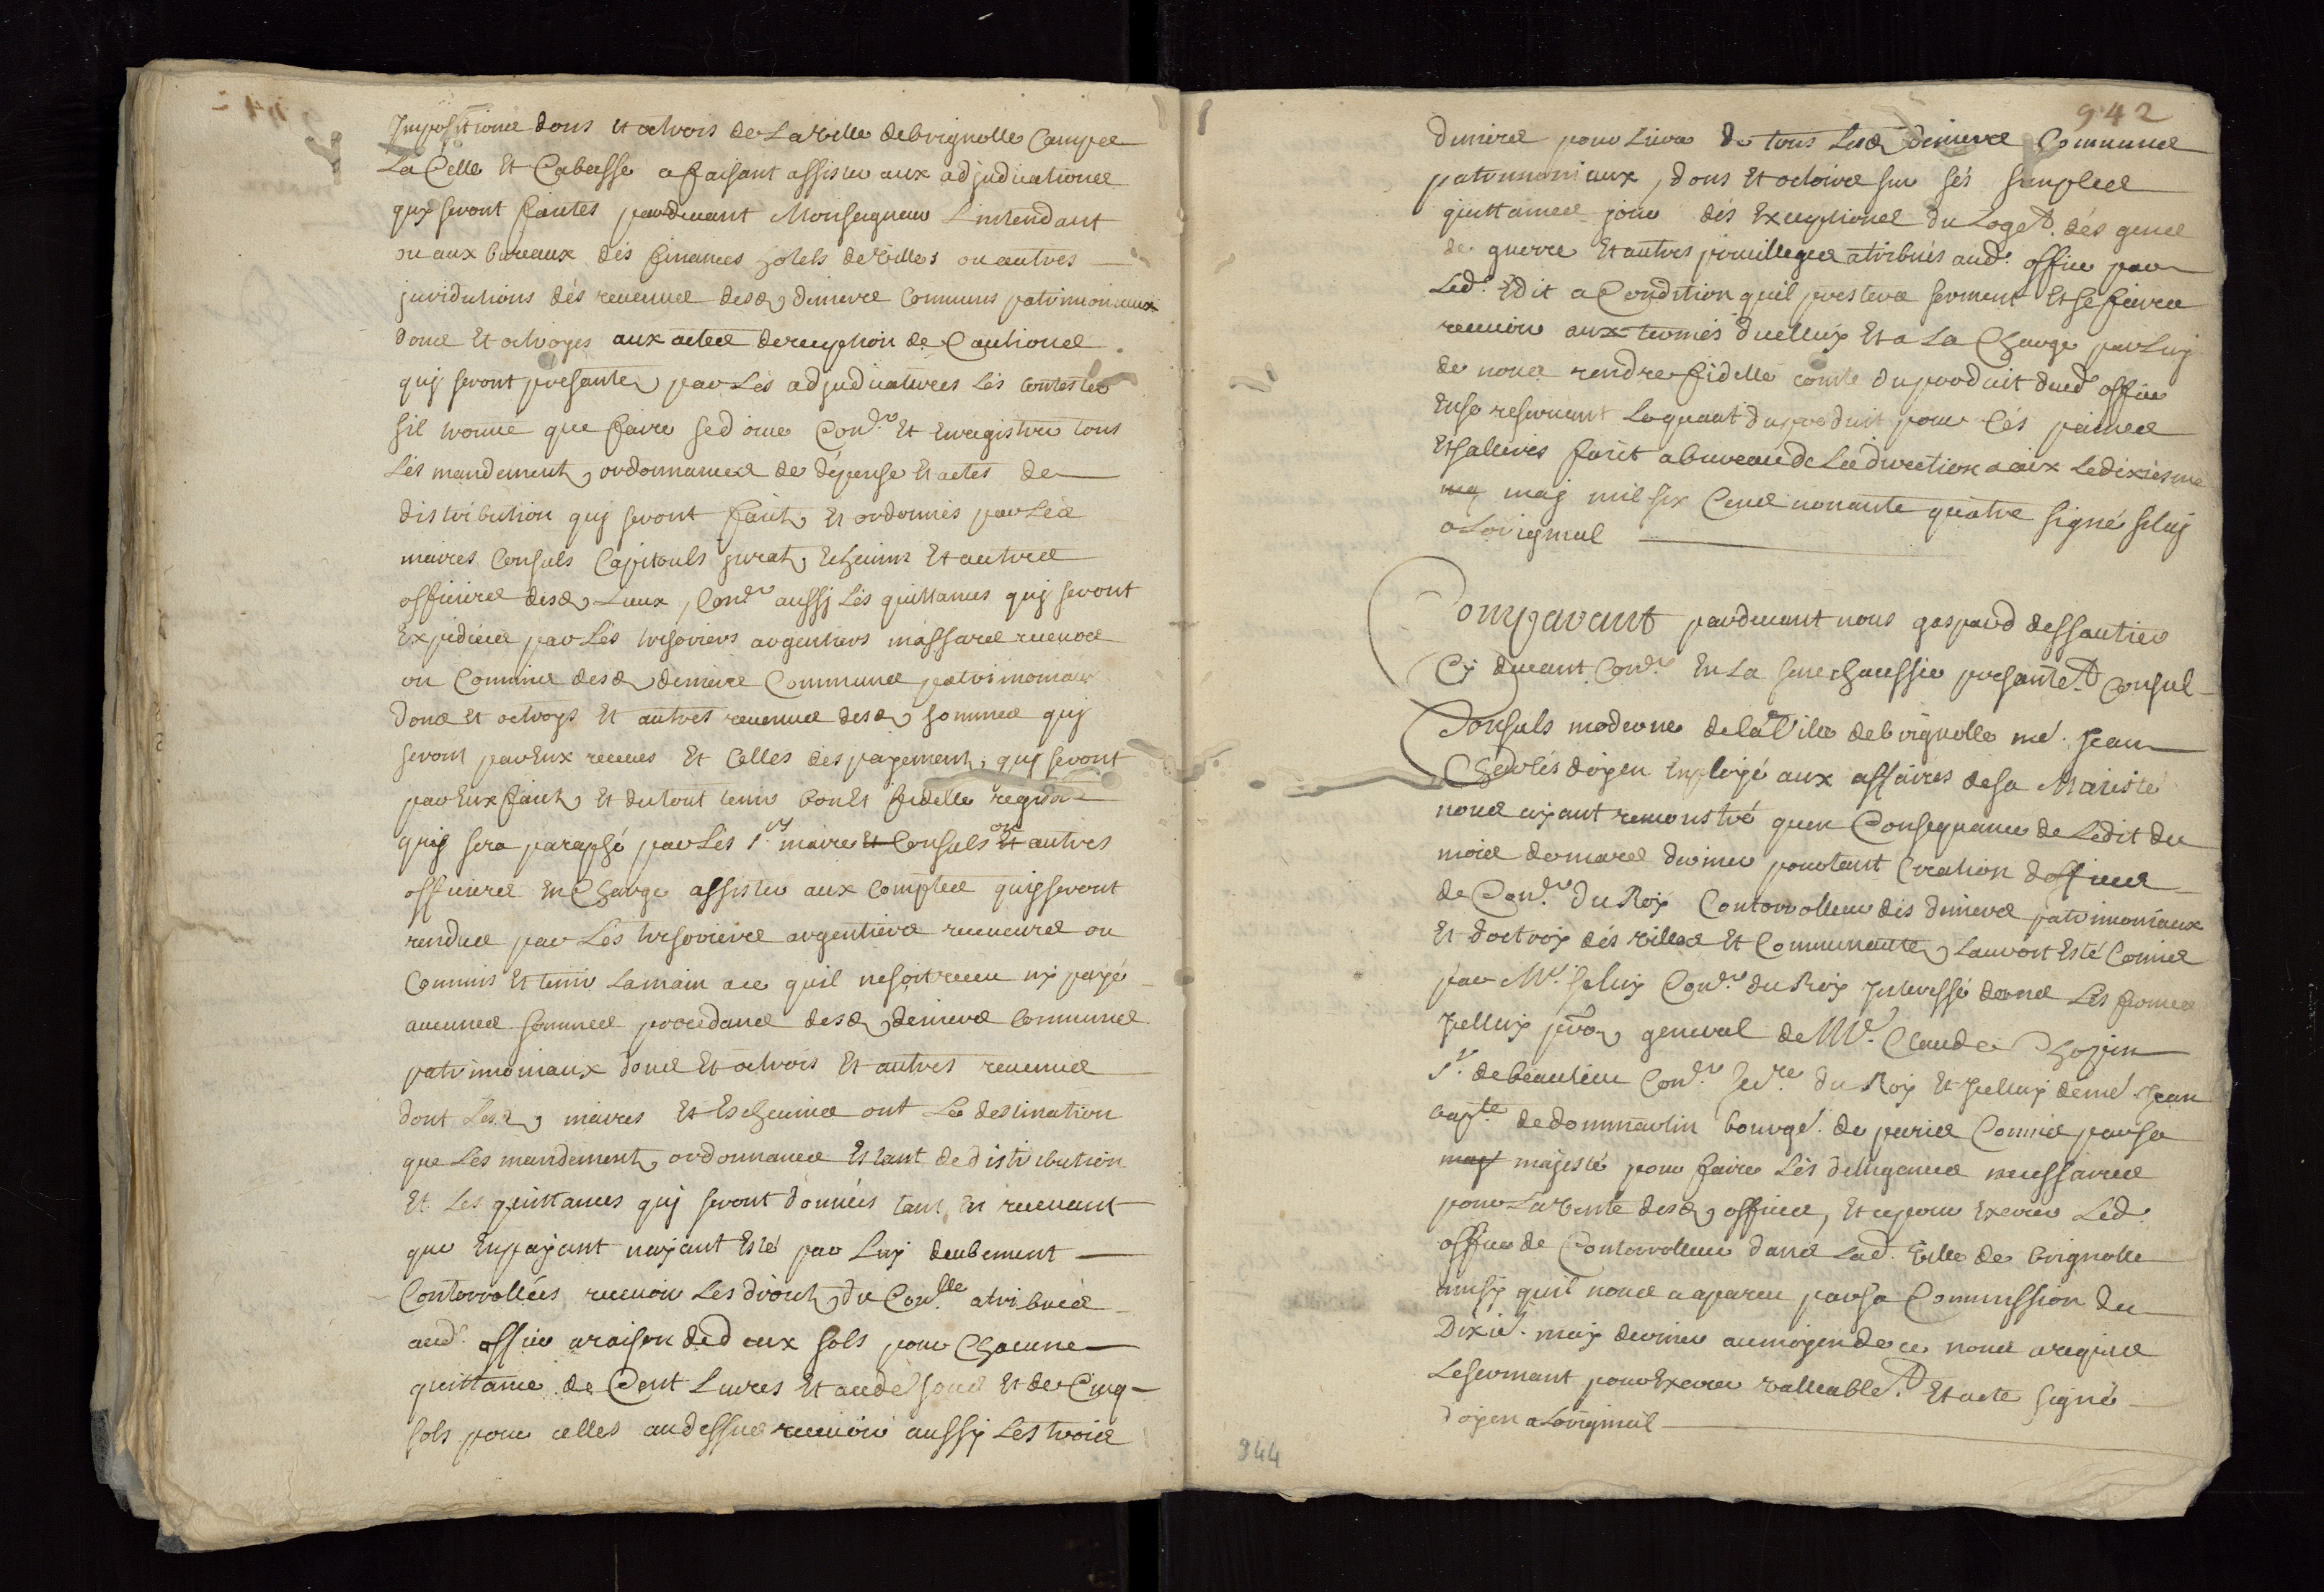 Impositions dons et octrois de la ville de brignolle Campz
La Celle et Cabasse a faisant assister aux adjudications
quy seront faites pardeuant Monseigneur Lintendant
ou aux bureaux dés finances hotels de villes ou autres
juridictions dés reuenus desd, deniers communs patrimoniaux
dons et octroys aux actes de reception de Cautions
quj seront presantes par Les adjudicatures Lés contester
sil trouue que faire se doiue Con.r Et Enregistrer tous
Lés mandements ordonnances de dépense Et actes de
distribution quj seront faits Et ordonnés par Les
maires Consuls Capitouls jurats Echeuins Et autres
officiers desd, Lieux, Con.r aussj Lés quittances quj seront
Expediées par Lés tresoriers argentiers massars receueurs
ou Commis desd, deniers Communs patrimoniaux
dons et octroys Et autres reuenus desd, sommes quj
seront par Eux receues Et Celles des payements, quj seront
par Eux faits, Et du tout tenir bon Et fidelle registre
quj sera paraphé par Lés s.rs maires et Consuls ou et autres
officiers En Charge assister aux Comptes quj seront
rendus par Lés tresoriers argentiers receueurs ou
Commis Et tenir La main ace quil ne soit receu nj payé
aucunes sommes procedans desd, deniers Communs
patrimoniaux dons Et octrois Et autres reuenus
dont Lesd, maires Et Escheuins ont La destination
que Lés mandements, ordonnances Estant de distribution
Et Les quittances quj seront données tant En receuant
que En payant nayant Esté par Luj deubement
Contorrollées receuoir Les droits, du Con.lle atribués
aud. office a raison de deux sols pour Chacune
quittance de Cent Liures Et au desous Et de Cinq
sols pour celles au dessus receuoir aussj Les trois
942
deniers pour Liure de tous Lesd, deniers Communs
patrimoniaux, dons Et octrois sur sés simples
quittances jouir dés Exceptions du Logét. dés gens
de guerre Et autres priuilleges atribués aud. office par
Led. Edit a Condition quil prestera serment Et se faira
receuoir aux termes dicelluj Et a La Charge par Luj
de nous rendre fidelle comte du produit dud. office
En se reseruant Le quart du produit pour Cés paines
Et sallaires fait a bureau de La direction a aix Le dixiesme
may maj mil six Cens nonante quatre signé Seluj
a Loriginal
Compavant pardeuant nous gaspard dessautier
Cj deuant Con.r En La senechaussée presantét. Consul
Consuls moderne de La Ville de brignolle me. Jean
Charles doyen Employé aux affaires de sa Maiesté
nous ayant remonstré quen Consequance de Ledit du
mois de mars dernier pourtant Creation doffices
de Con.r du Roy Contorrolleur dés deniers patrimoniaux
Et doctroy dés villes Et Communautes, Lauroit Esté Comis
par Mr. Seluj Con.r du Roy Interessé dans Lés fermes
Jcelluj pro general de Me. Claude Chopin
s.r de beaulieu Con.r Sec.re du Roy Et Jcelluj de me. Jean
bapt.te de dommartin bourgé. de paris Comis par sa
maj majesté pour faire Lés deligences necessaires
pour La vente desd, offices, Et ce pour Exercer Led.
office de Contorrolleur dans Lad. ville de brignolle
ainsy quil nous a aparu par sa Commission du
Dixié. maj dernier au moyen de ce nous a requis
Le sermant pour Exercer valleablet. Et acte signé
doyen a Loriginal
944